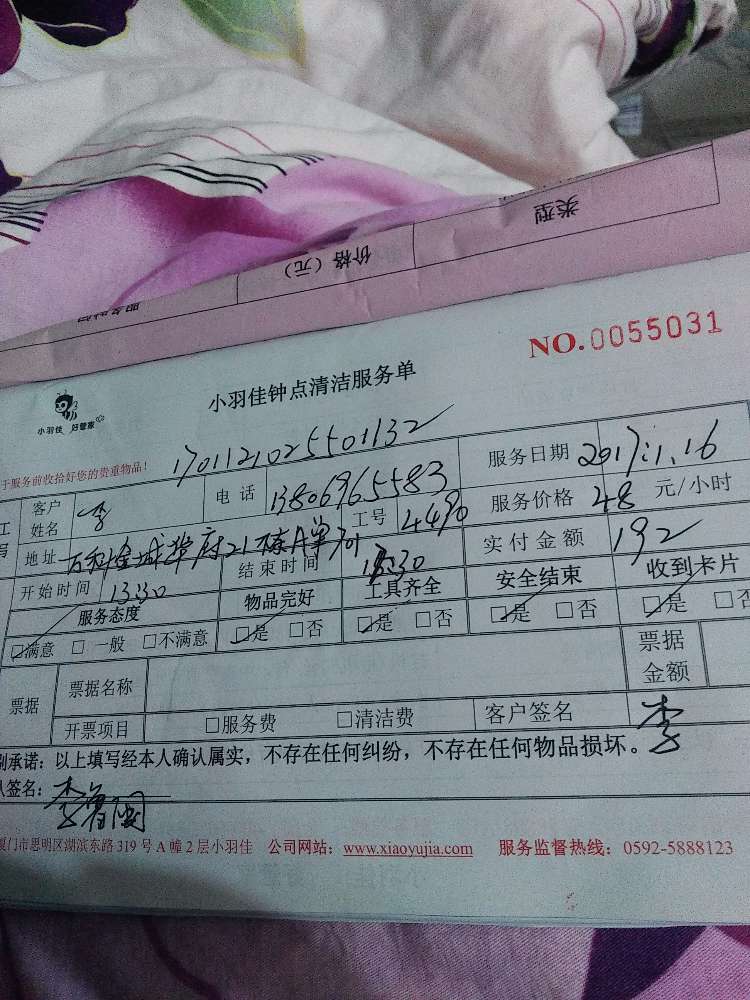 类型
价格（元）
服务时间
NO.0055031
小羽佳钟点清洁服务单
小羽佳 好管家
1701121025501132
于服务前收拾好您的贵重物品！
客户姓名 李 电话 13806965583 服务日期 2017.1.16
工号 4490 服务价格 48 元/小时
地址 万科金域华府21栋A单701
开始时间 13:30 结束时间 :30 实付金额 192
服务态度 物品完好 工具齐全 安全结束 收到卡片
☑满意 □一般 □不满意 ☑是 □否 ☑是 □否 ☑是 □否 ☑是 □
票据 票据名称 票据金额
开票项目 □服务费 □清洁费 客户签名 李
别承诺：以上填写经本人确认属实，不存在任何纠纷，不存在任何物品损坏。
人签名：李
厦门市思明区湖滨东路 319 号 A 幢 2 层小羽佳 公司网站：www.xiaoyujia.com 服务监督热线：0592-5888123